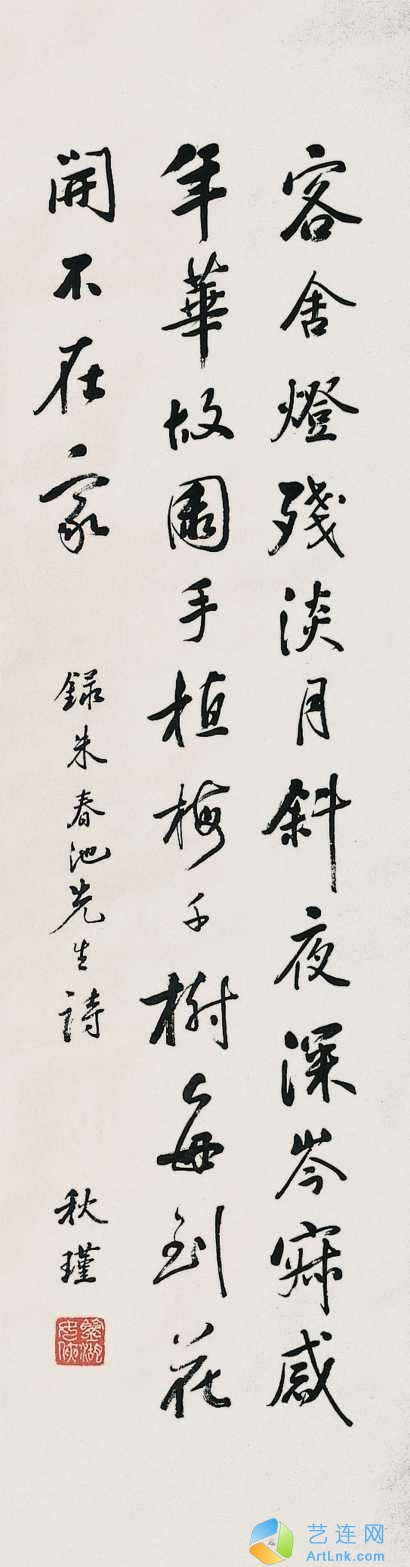 客舍燈殘淡月斜夜深岑寂感
年華故園手植梅千樹每到花
開不在家
錄朱春池先生詩
秋瑾
鑒湖女俠
艺连网
ArtLnk.com